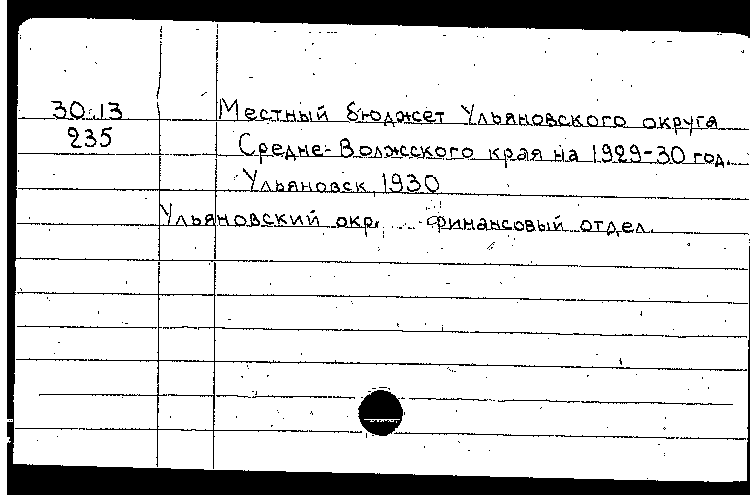 30.13 Местный бюджет Ульяновского округа
235 Средне-Волжского края на 1929-30 год.
Ульяновск, 1930
Ульяновский окр. ... финансовый отдел.